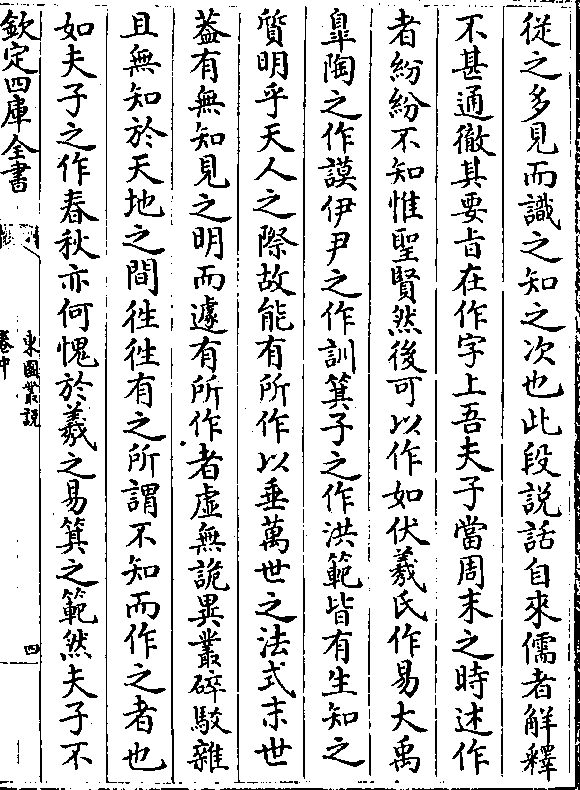 從之多見而識之知之次也此段説話自來儒者解釋
不甚通徹其要㫖在作字上吾夫子當周末之時述作
者紛紛不知惟聖賢然後可以作如伏羲氏作易大禹
臯陶之作謨伊尹之作訓箕子之作洪範皆有生知之
質明乎天人之際故能有所作以垂萬世之法式末世
葢有無知見之明而遽有所作者虚無詭異叢碎駁雜
且無知於天地之間徃徃有之所謂不知而作之者也
如夫子之作春秋亦何愧於羲之易箕之範然夫子不
欽定四庫全書
東園叢説
卷中
四